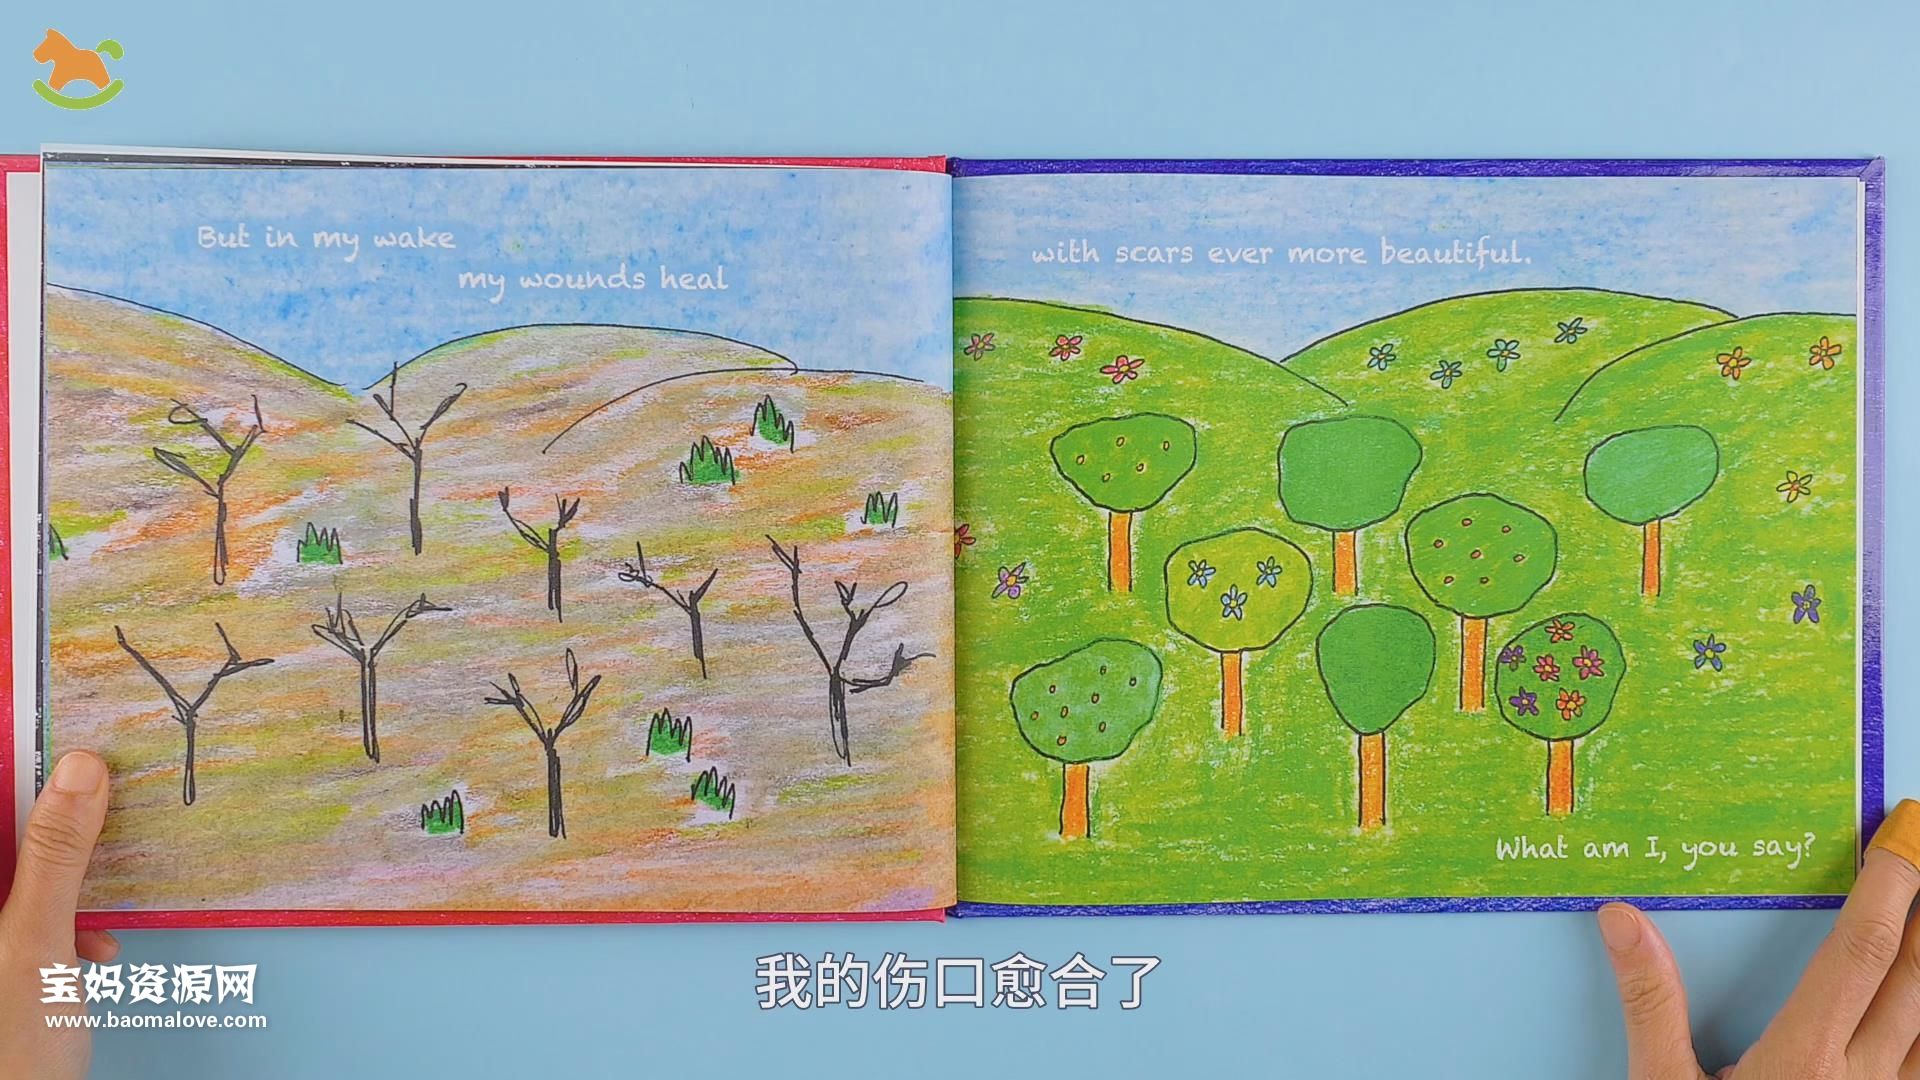 But in my wake
my wounds heal
with scars ever more beautiful.
What am I, you say?
我的伤口愈合了
宝妈资源网
www.baomalove.com